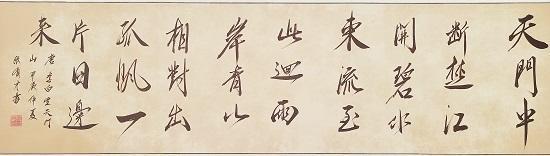 天門中
斷楚江
開碧水
東流至
此迴兩
岸青山
相對出
孤帆一
片日邊
来
唐李白望天门
山 仲夏